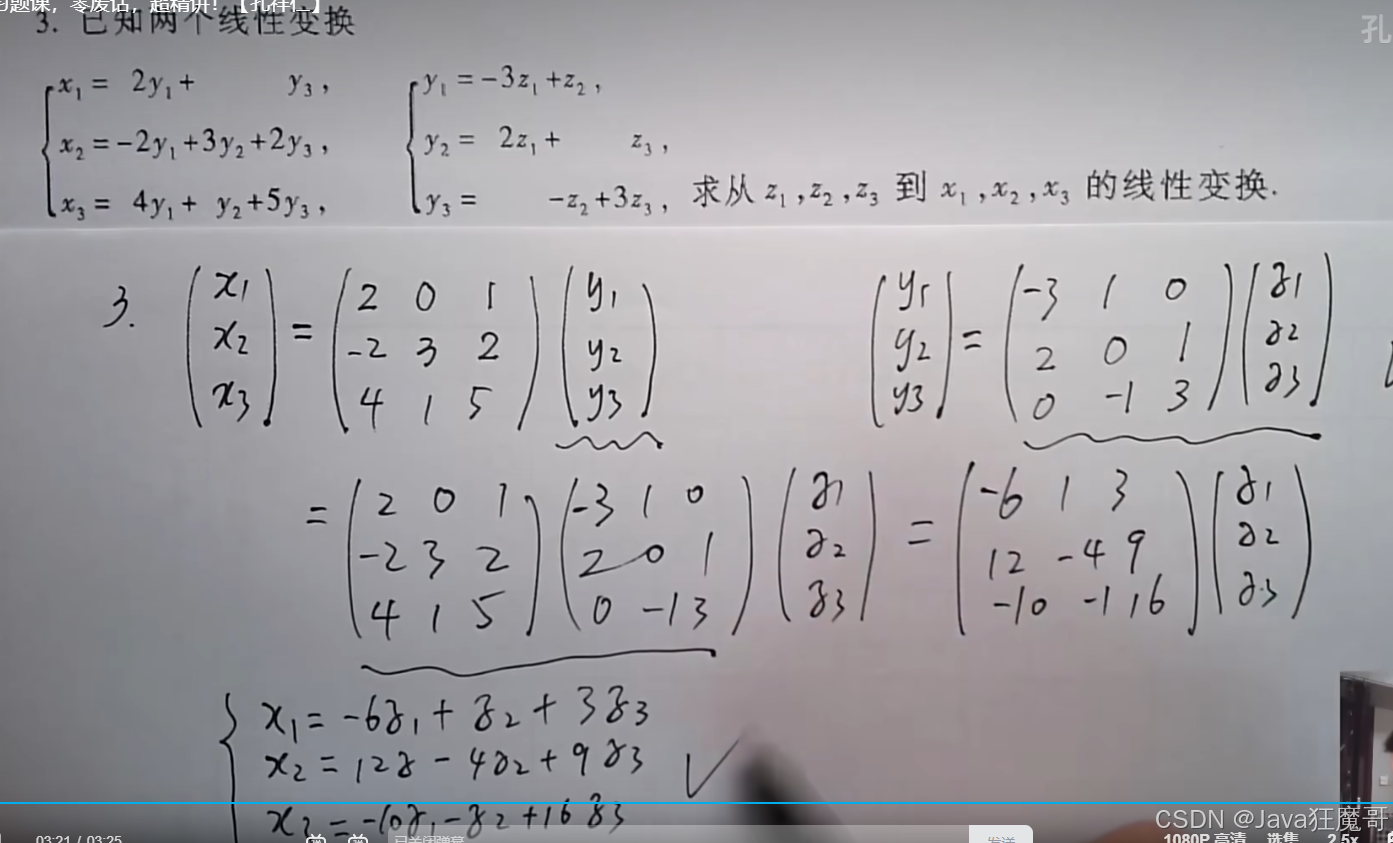 习题课，零废话，超精讲！【孔祥仁】
孔
3. 已知两个线性变换
x₁ = 2y₁ + y₃ ,
x₂ = -2y₁ + 3y₂ + 2y₃ ,
x₃ = 4y₁ + y₂ + 5y₃ ,
y₁ = -3z₁ + z₂ ,
y₂ = 2z₁ + z₃ ,
y₃ = -z₂ + 3z₃ , 求从 z₁ , z₂ , z₃ 到 x₁ , x₂ , x₃ 的线性变换.
3. (x₁ x₂ x₃) = (2 0 1 / -2 3 2 / 4 1 5) (y₁ y₂ y₃)
(y₁ y₂ y₃) = (-3 1 0 / 2 0 1 / 0 -1 3) (z₁ z₂ z₃)
= (2 0 1 / -2 3 2 / 4 1 5) (-3 1 0 / 2 0 1 / 0 -1 3) (z₁ z₂ z₃) = (-6 1 3 / 12 -4 9 / -10 -1 16) (z₁ z₂ z₃)
x₁ = -6z₁ + z₂ + 3z₃
x₂ = 12z - 4z₂ + 9z₃
x₃ = -10z₁ - z₂ + 16z₃
CSDN @Java狂魔哥
03:21 / 03:25 已关闭弹幕 发送 1080P 高清 选集 2.5x